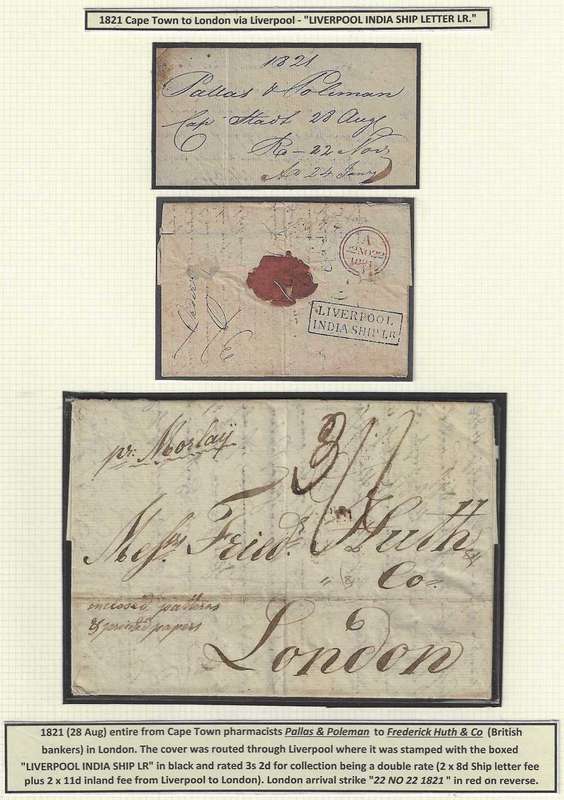 1821 Cape Town to London via Liverpool - "LIVERPOOL INDIA SHIP LETTER LR."
1821
Pallas & Poleman
Cap Stadt 28 Aug
R - 22 Nov
A 24 Jany
A
22 NO 22
1821
LIVERPOOL
INDIA SHIP LR
pr. Morlaÿ
3/
Messrs Friedk Huth
& Co
enclosed patterns
& printed papers
London
1821 (28 Aug) entire from Cape Town pharmacists Pallas & Poleman to Frederick Huth & Co (British
bankers) in London. The cover was routed through Liverpool where it was stamped with the boxed
"LIVERPOOL INDIA SHIP LR" in black and rated 3s 2d for collection being a double rate (2 x 8d Ship letter fee
plus 2 x 11d inland fee from Liverpool to London). London arrival strike "22 NO 22 1821" in red on reverse.